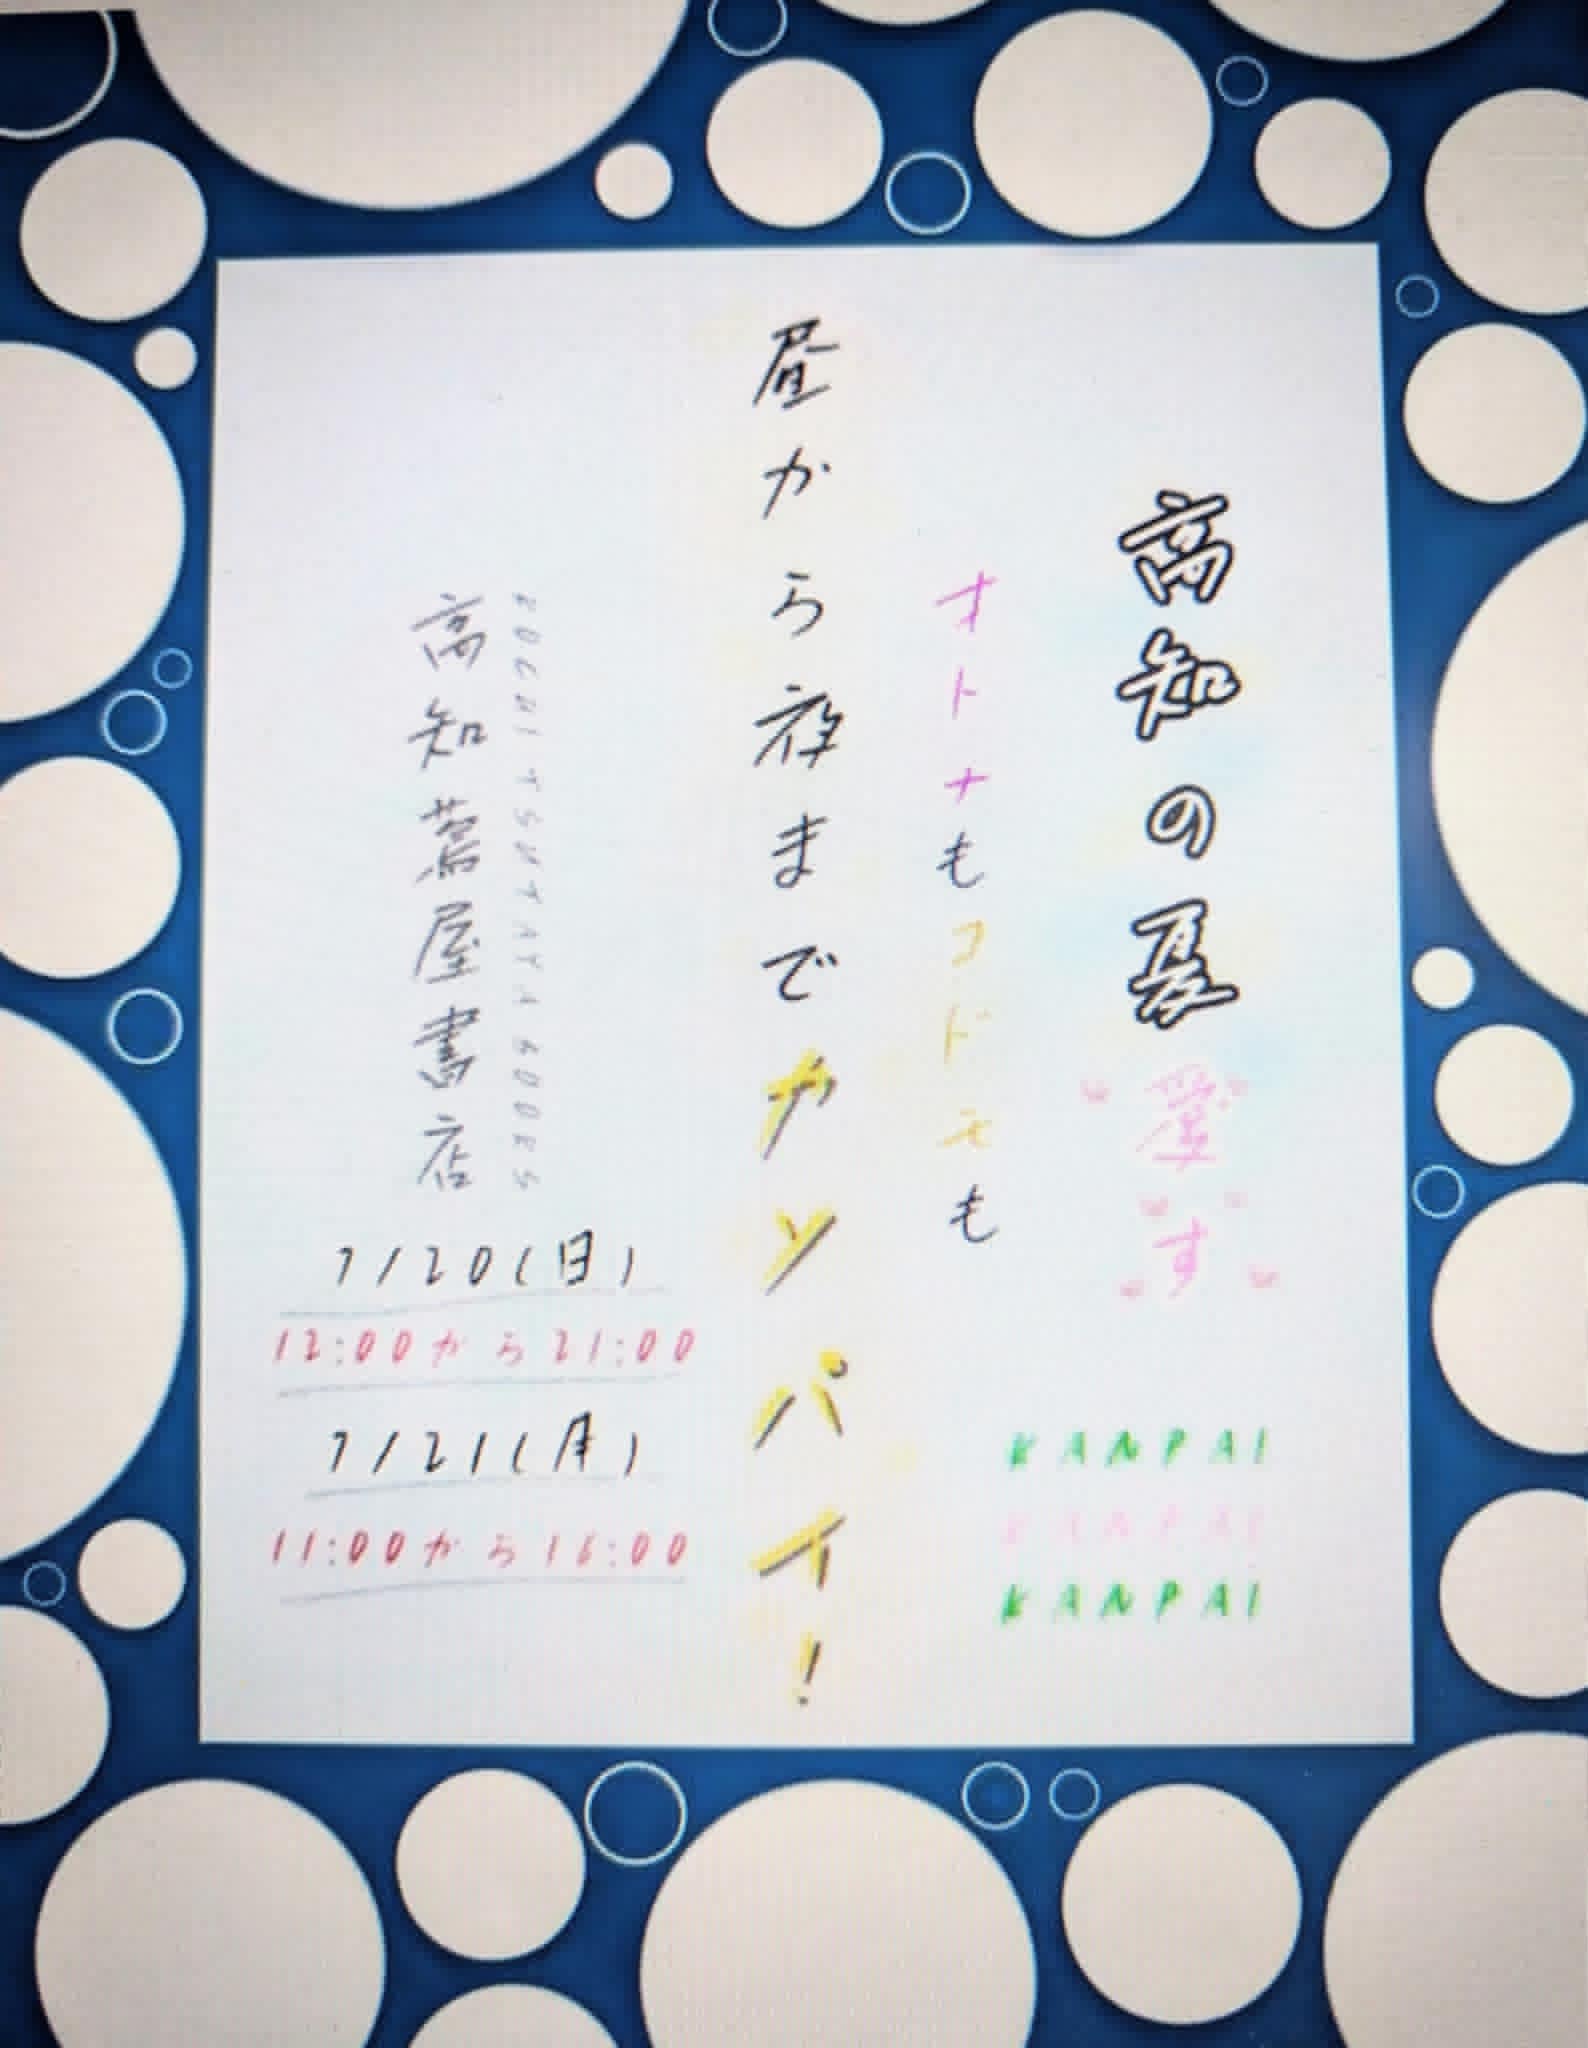 高知の夏愛す
オトナもコドモも
昼から夜までカンパイ!
KANPAI
KANPAI
KANPAI
KOCHI TSUTAYA BOOKS
高知蔦屋書店
7/20(日)
12:00から21:00
7/21(月)
11:00から16:00